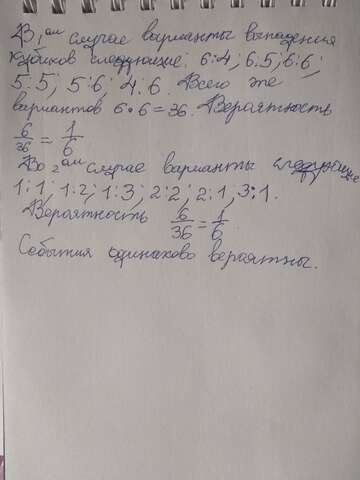 В 1ом случае варианты выпадения
кубиков следующие: 6:4; 6:5; 6:6;
5:5; 5:6; 4:6. Всего же
вариантов 6·6=36. Вероятность
6/36 = 1/6
Во 2ом случае варианты следующие
1:1; 1:2; 1:3; 2:2; 2:1, 3:1.
Вероятность 6/36 = 1/6.
События одинаково вероятны.